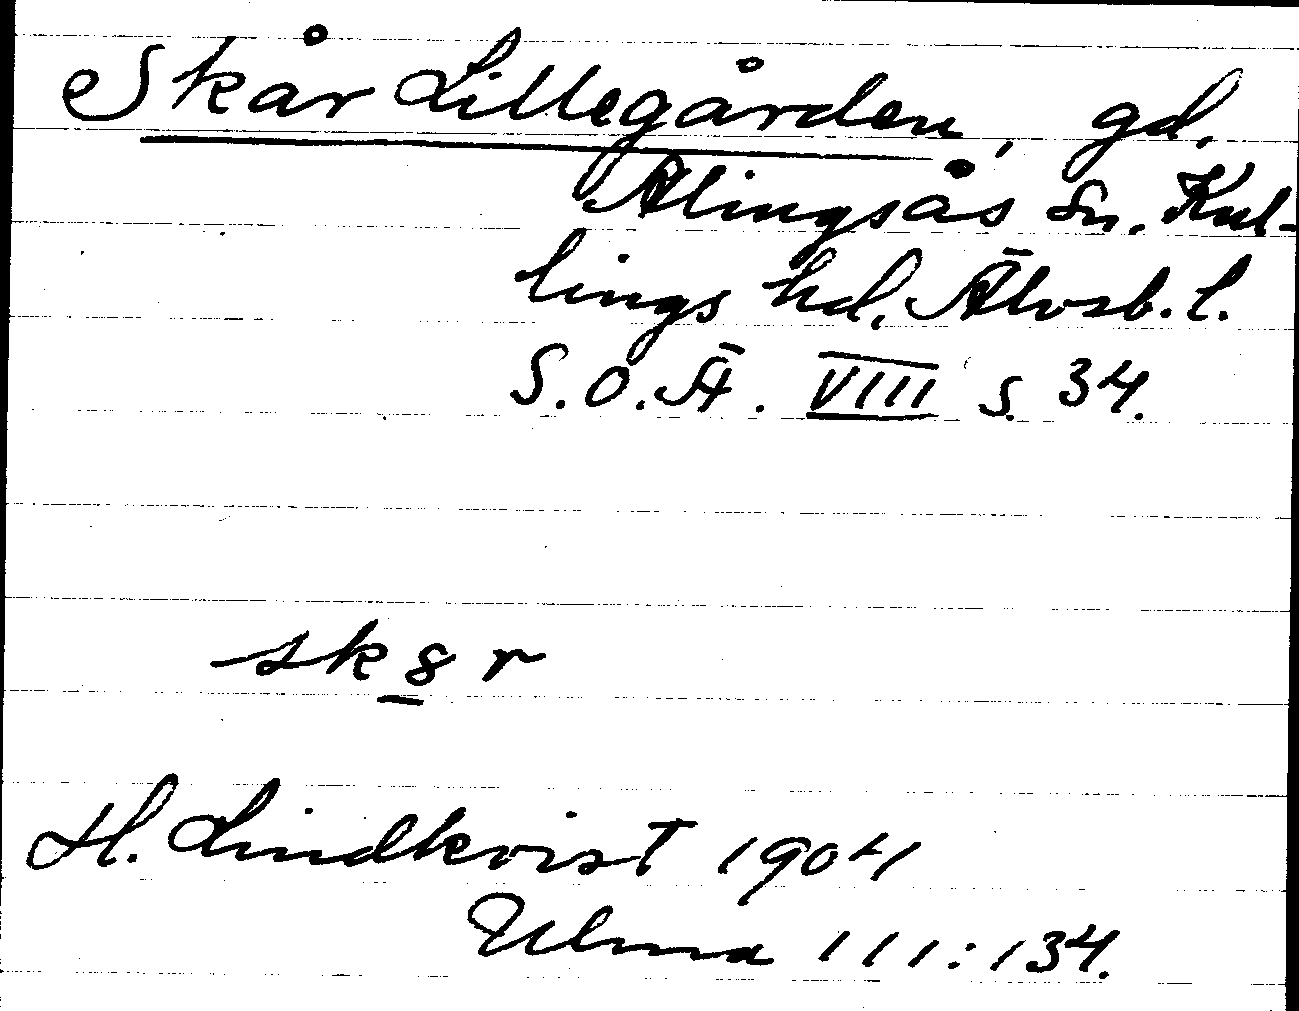 Skår Lillegården, gd.
Alingsås sn. Kul-
lings hd. Älvsb. l.
S. O. Ä. VIII s. 34.
sk8r
H. Lindkvist 1904
Ulma 111:134.